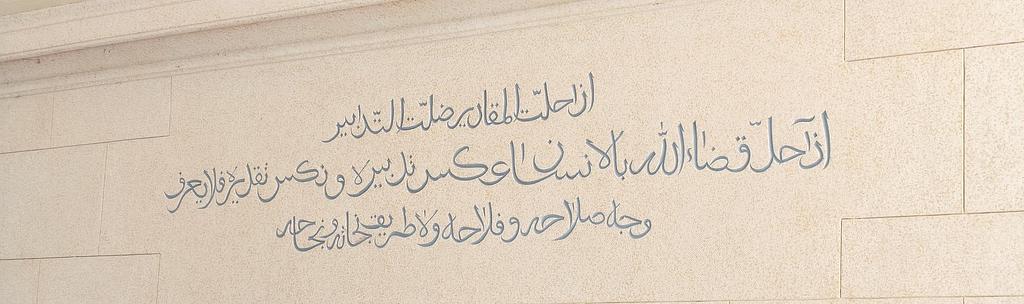 إذا حلّت المقادير ضلّت التّدابير
إذا حلّ قضاء الله بالانسان عكس تدبيره ونكس تقديره فلا يعرف
وجه صلاحه وفلاحه ولا طريق نجاته ونجاحه